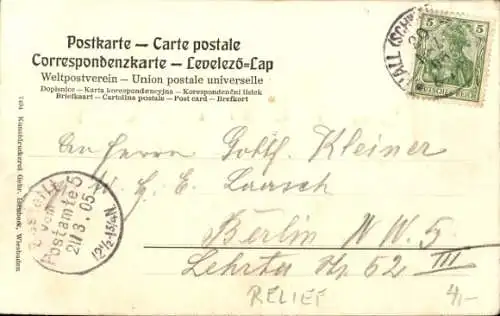 Postkarte — Carte postale
Correspondenzkarte — Levelező-Lap
Weltpostverein — Union postale universelle
Dopisnice – Karta korespondencyjna – Korespondenční lístek
Briefkaart – Cartolina postale – Post card – Brefkort
5 5
HALL (SCHW
An Herrn Gotth. Kleiner
Berlin N.W. 5
Lehrter Str 52 III
vom
Postamte 5
20/3.05
12½-1½N.
RELIEF
4,-
7494 Kunstdruckerei Gebr. Wiesbaden